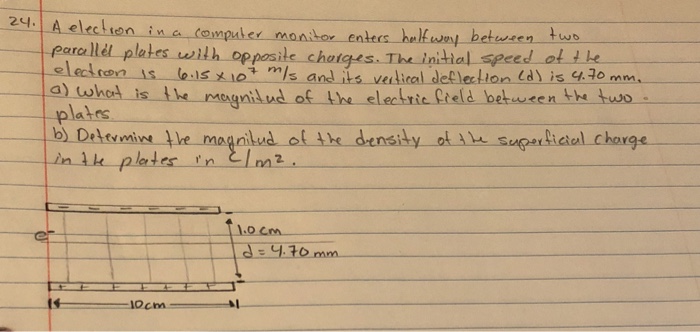 24. A electron in a computer monitor enters halfway between two
parallel plates with opposite charges. The initial speed of the
electron is 6.15 x 10^7 m/s and its vertical deflection (d) is 4.70 mm.
a) What is the magnitud of the electric field between the two
plates
b) Determine the magnitud of the density of the superficial charge
in the plates in C/m².
e-
1.0 cm
d = 4.70 mm
10 cm